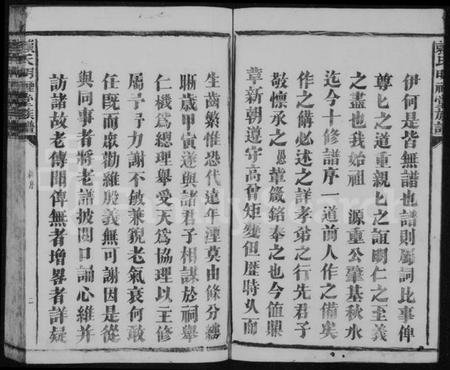 伊何是皆無譜也譜則屬詞比事俾
尊匕之道重親匕之誼明仁之至義
之盡也我始祖 源重公肇基秋水
迄今十修譜序一道前人作之備矣
作之備必述之詳孝弟之行先君子
敬懷永之愚輩箴銘奉之也今值鼎
革新朝遵守高曾矩變但歷時久而
生齒蕃惟恐代遠年湮莫由條分縷
晰歲甲寅遂與諸君子相謀於祠舉
仁機爲總理舉受天爲協理以主修
屬予予力謝不敏兼猊老氣衰何敢
任既而嚴勸維殷義無可謝因是從
與同事者將老譜披閱口誦心維并
訪諸故老傳聞俾無者增畧者詳疑
氏明禋堂族譜
二